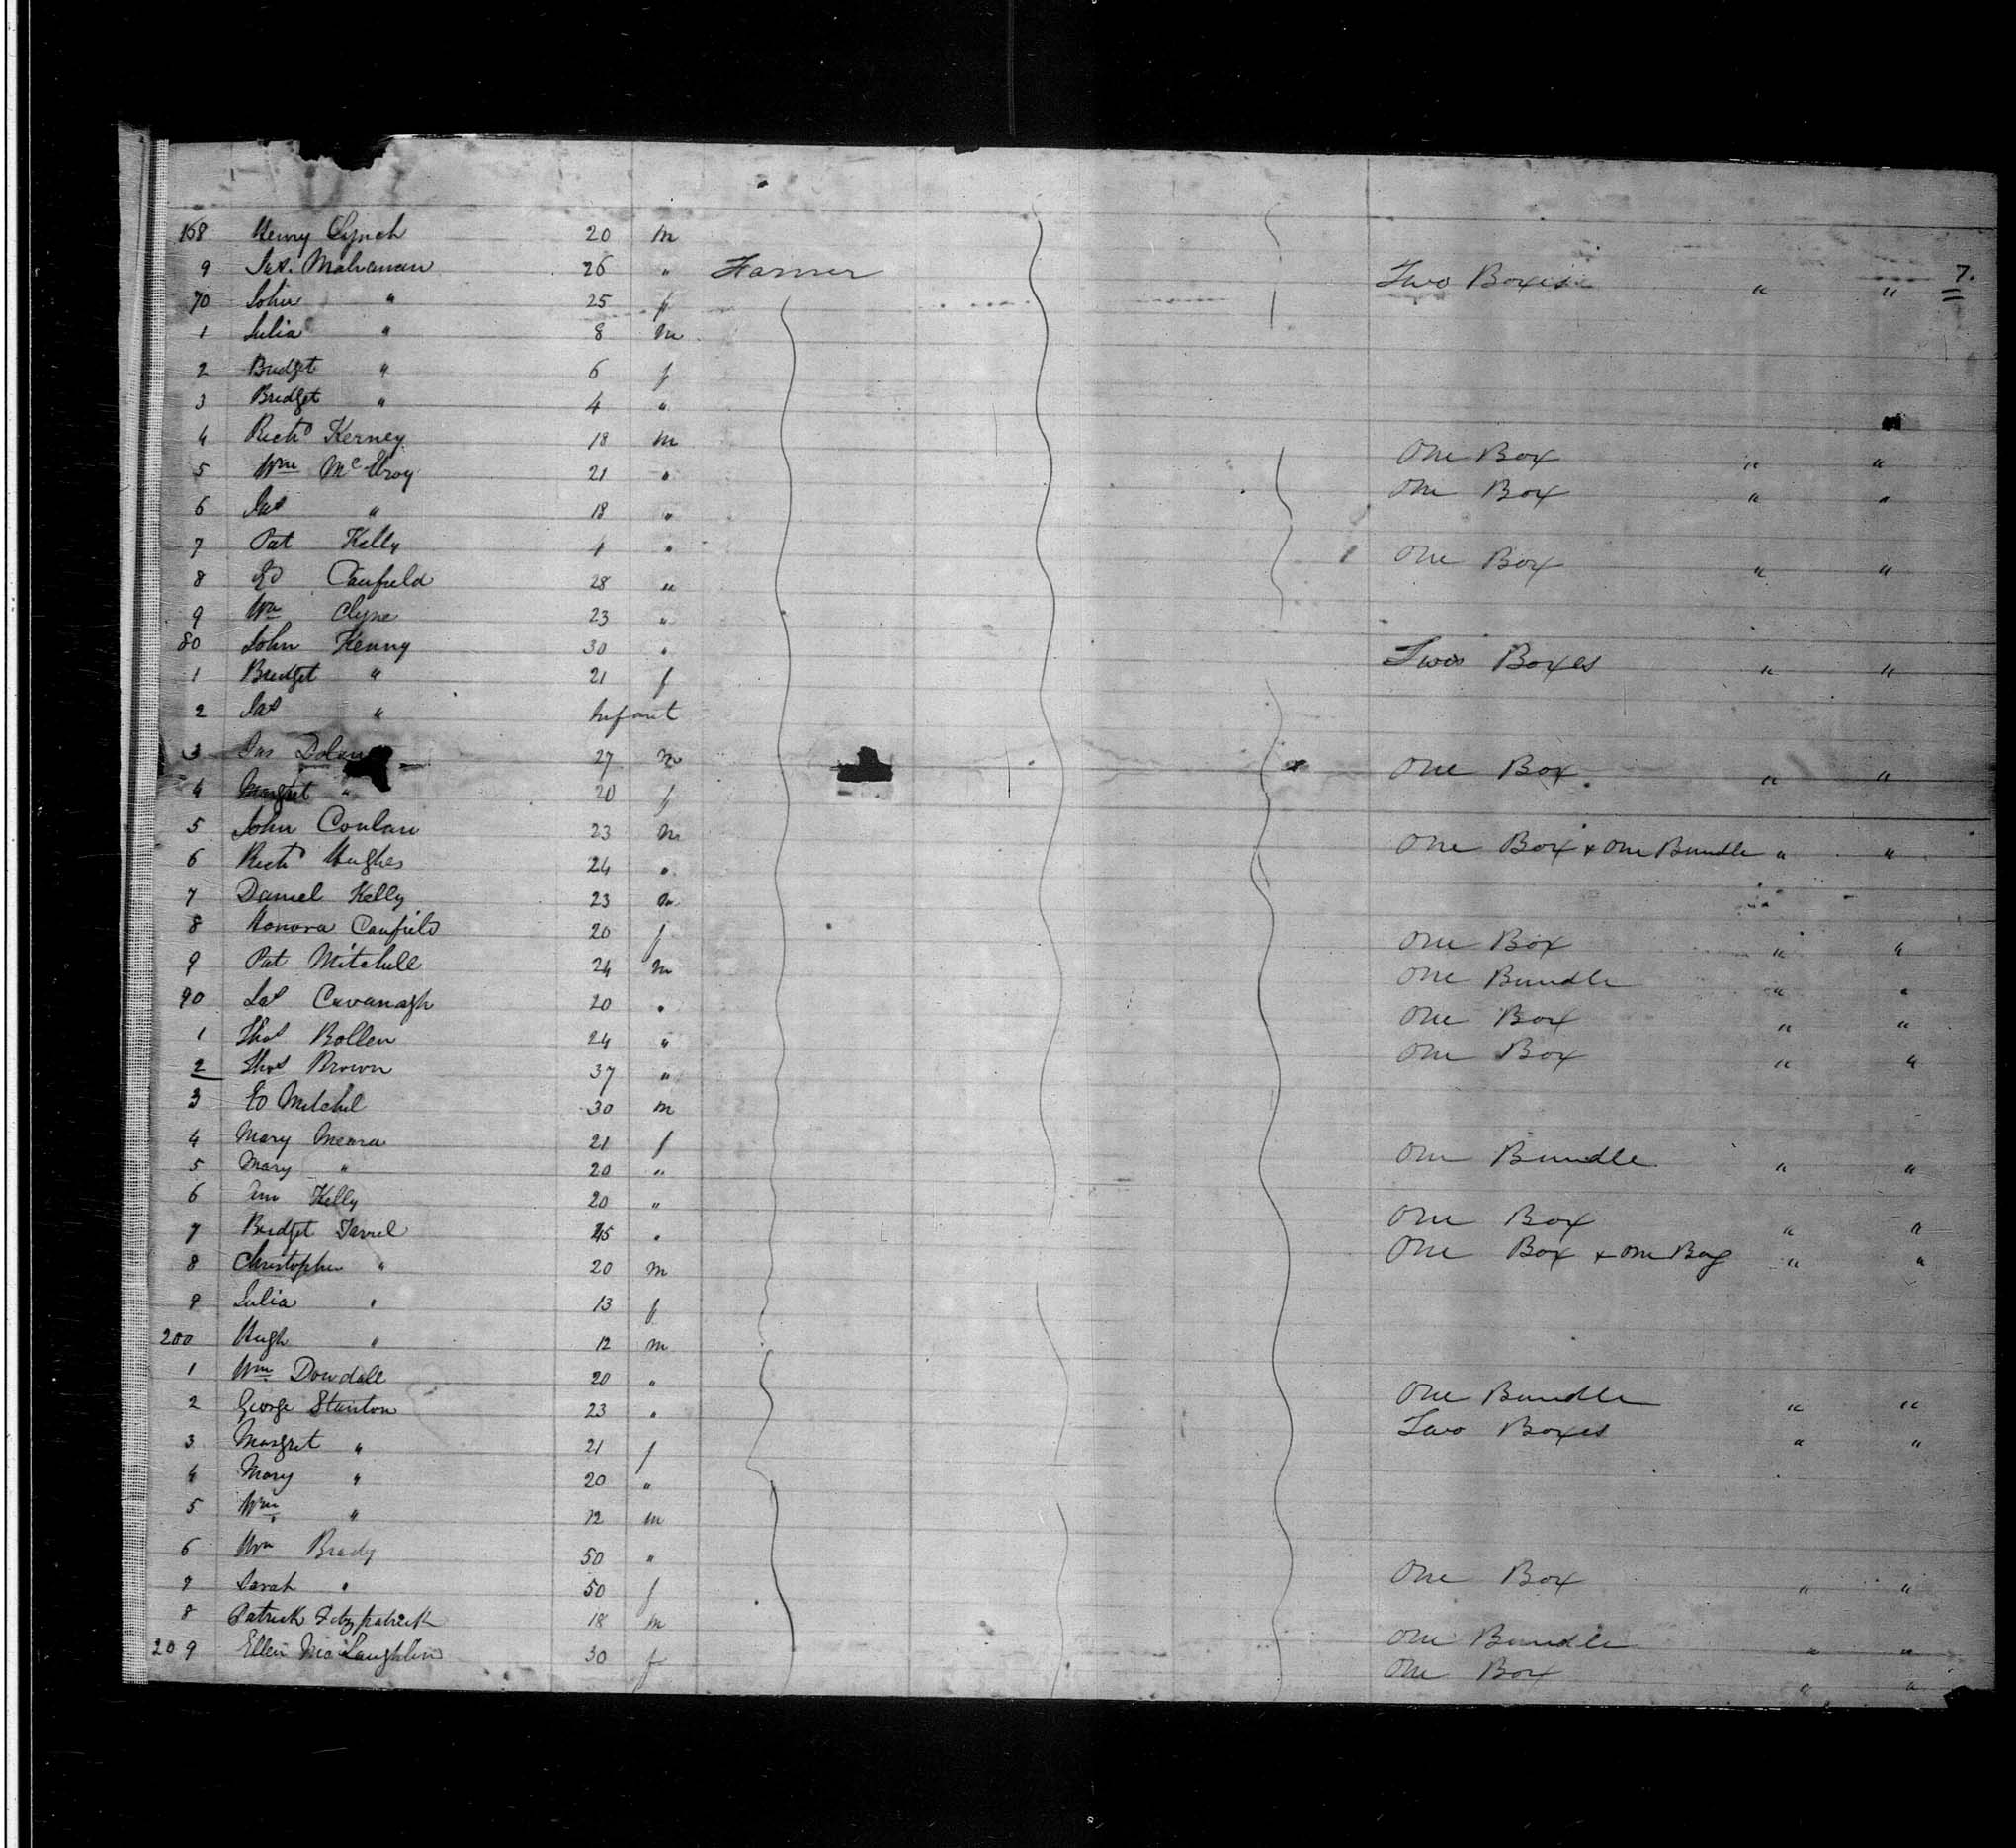 168 Henry Lynch 20 m
9 Jas. Mulvanan 26 " Farmer Two Boxes " " 7.
70 John " 25 f
1 Julia " 8 m
2 Bridget " 6 f
3 Bridget " 4 "
4 Richd Kerney 18 m One Box " "
5 Wm McElroy 21 " One Box " "
6 Jas " 18 "
7 Pat Kelly " One Box " "
8 Ed Caufield 28 "
9 Wm Clyne 23 "
80 John Kenny 30 " Two Boxes " "
1 Bridget " 21 f
2 Jas " Infant
3 Jas Dolan 27 m One Box " "
4 Margret " 20 f
5 John Conlan 23 m One Box & One Bundle " "
6 Richd Hughes 24 "
7 Daniel Kelly 23 m
8 Honora Caufield 20 f One Box " "
9 Pat Mitchell 24 m One Bundle " "
90 Jas Cavanagh 20 " One Box " "
1 Thos Bollen 24 " One Box " "
2 Thos Brown 37 "
3 Ed Mitchel 30 m
4 Mary Meara 21 f One Bundle " "
5 Mary " 20 "
6 Ann Kelly 20 " One Box " "
7 Bridget Farrel 45 " One Box & One Bag " "
8 Christopher " 20 m
9 Julia " 13 f
200 Hugh " 12 m
1 Wm Dowdall 20 " One Bundle " "
2 George Stanton 23 " Two Boxes " "
3 Margret " 21 f
4 Mary " 20 "
5 Wm " 12 m
6 Wm Brady 50 " One Box " "
7 Sarah " 50 f
8 Patrick Fitzpatrick 18 m One Bundle " "
209 Ellen McLaughlin 30 f One Box " "